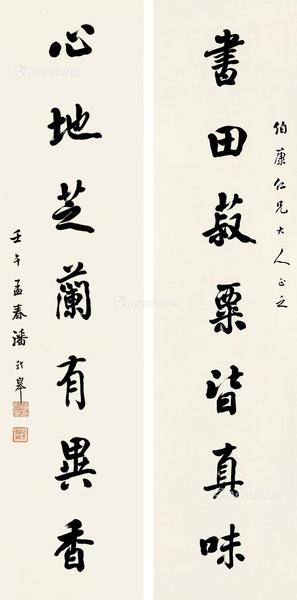 伯康仁兄大人正之
書田菽粟皆真味
心地芝蘭有異香
壬午孟春潘齡皋